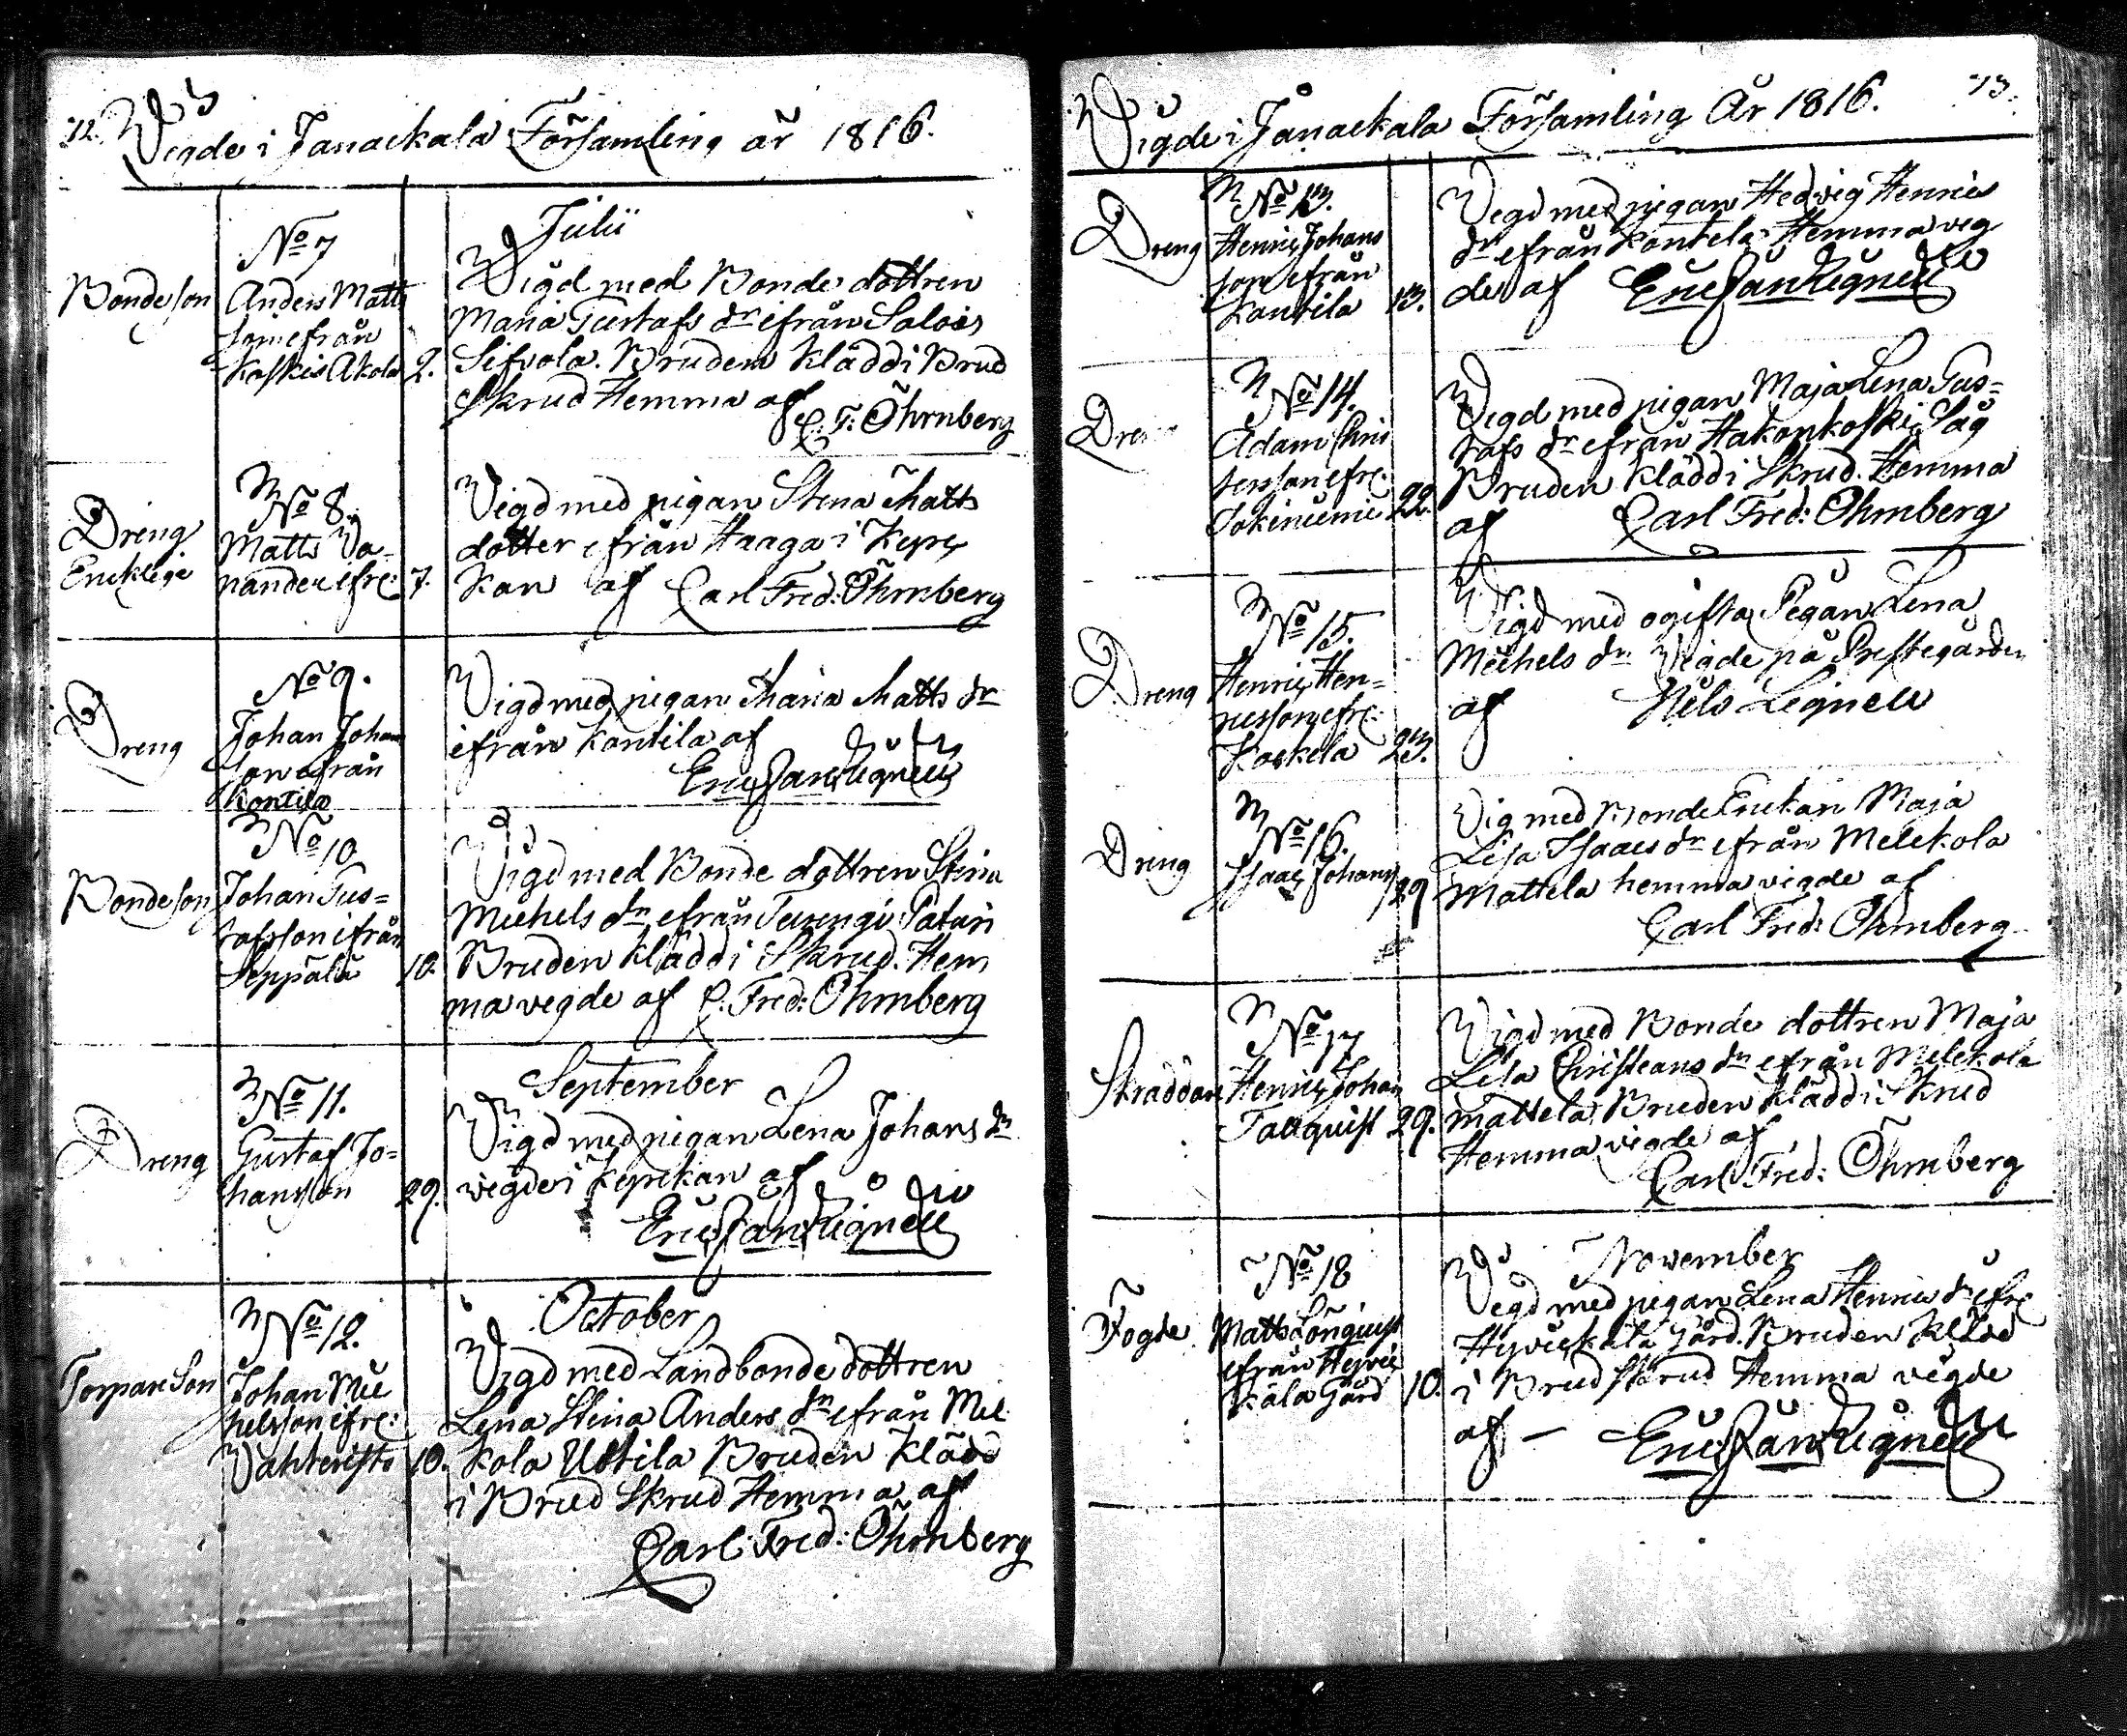 12.
Vigde i Janackala Församling år 1816.
Julii
No 7
Bondeson
Anders Matts
son ifrån
Kaskis Akola 2.
Vigd med Bonde dottren
Maria Gustafs dr ifrån Salois
Sifvola. Bruden klädd i Brud
Skrud Hemma af
C. F. Öhrnberg
No 8.
Dreng
Enkling
Matts
ifr: 7.
Vigd med pigan Stina Matts
dotter ifrån Haaga i Kyrc
kan af Carl Fred: Öhrnberg
No 9.
Dreng
Johan Johans
son ifrån
Kontila
Vigd med pigan Maria Matts dr
ifrån Kantila af
Eric Jan Lignell
No 10
Bondeson
Johan Gus=
tafsson ifrån
Seppälä 10.
Vigd med Bonde dottren Stina
Michels dr ifrån Turengi Paturi
Bruden klädd i Skrud. Hem
ma vigde af C. Fred: Öhrnberg
September
No 11.
Dreng
Gustaf Jo=
hansson 29.
Vigd med pigan Lena Johans dr
vigde i Kyrckan af
Eric Jan Lignell
October
No 12.
Torpare Son
Johan Mic
helsson ifr:
Vahteristo 10.
Vigd med Landbonde dottren
Lena Stina Anders dr ifrån Mel
kola Uotila Bruden Klädd
i Brud Skrud Hemma af
Carl Fred: Öhrnberg
13.
Vigde i Janackala Församling År 1816.
No 13.
Dreng
Henric Johans
son ifrån
Kantila 13.
Vigd med pigan Hedvig Henrics
dr ifrån Kontila Hemma vig
de af Eric Jan Lignell
No 14.
Dreng
Adam Chris
tersson ifr:
22.
Vigd med pigan Maja Lena Gus=
tafs dr ifrån Hakonkoski Såg
Bruden Klädd i Skrud. Hemma
af Carl Fred: Öhrnberg
No 15.
Dreng
Henric Hen=
ricsson ifr:
Koskela 23.
Vigd med ogifta Pigan Lena
Michels dr Vigde på Prestegården
af Nils Lignell
No 16.
Dreng
Isaac Johans 29
Vig med Bonde Enckan Maja
Lisa Isaacs dr ifrån Melckola
Mattela hemma vigde af
Carl Fred: Öhrnberg
No 17
Skräddare
Henric Johan
Tallquist 29.
Vigd med Bonde dottren Maja
Lisa Christians dr ifrån Melckola
Mattela, Bruden Klädd i Skrud
Hemma vigde af
Carl Fred: Öhrnberg
November
No 18
Fogde
Matts Lönquist
ifrån Hyvic
kälä Gård 10.
Vigd med pigan Lena Henrics dr ifr:
Hyvickälä Gård. Bruden Klädd
i Brud Skrud Hemma vigde
af — Eric Jan Lignell